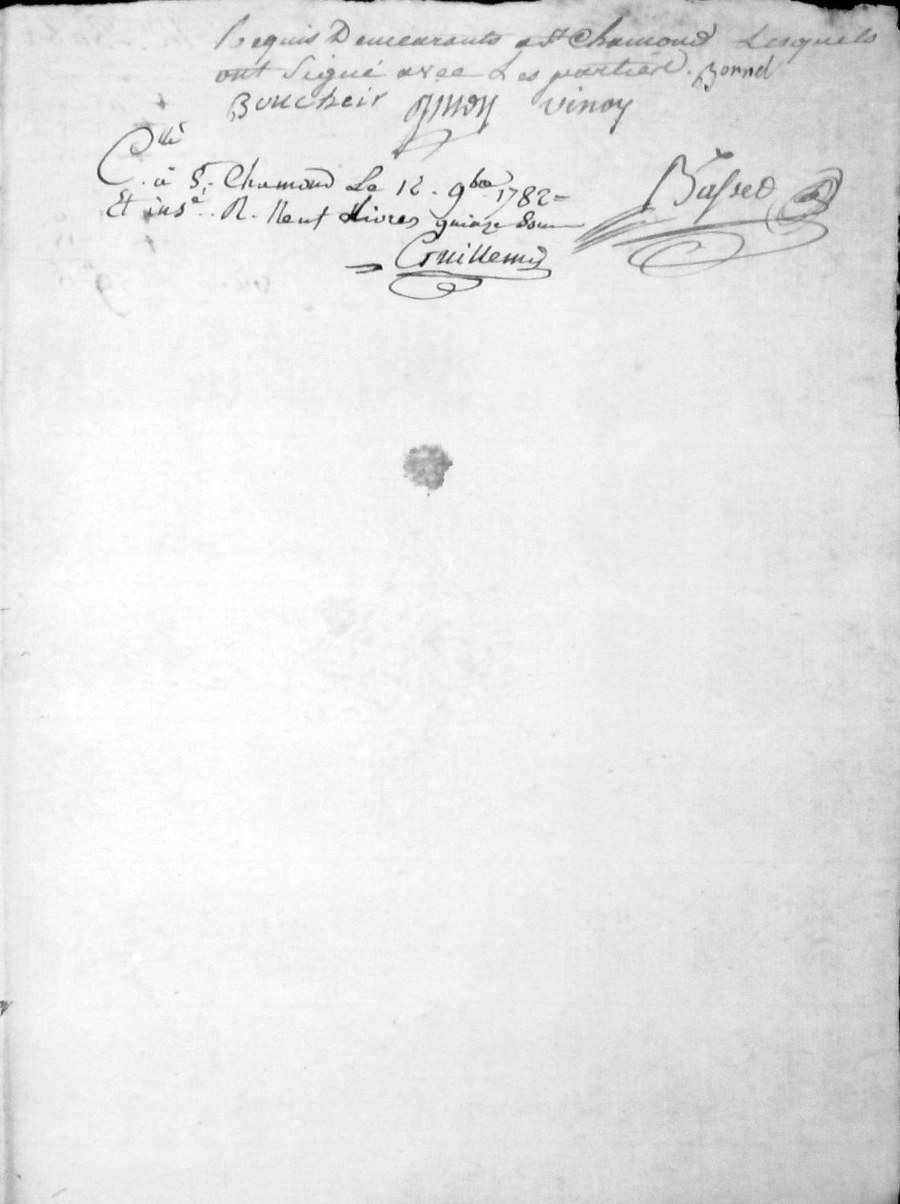 Requis Demeurants a St Chamond Lesquels
ont Signé avec Les parties. Bonnel
Boucheir vinoy
C.llé à St. Chamond Le 12. 9bre 1782
Et ins.é R. Neuf Livres quinze Sous